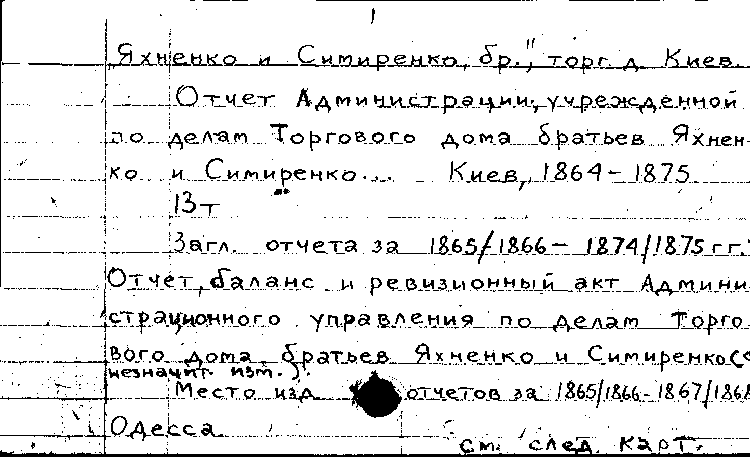 1
„Яхненко и Симиренко, бр.", торг. д. Киев.
Отчет Администрации, учрежденной
по делам Торгового дома братьев Яхнен-
ко и Симиренко... Киев, 1864-1875
13т
Загл. отчета за 1865/1866 - 1874/1875 гг.:
Отчет, баланс и ревизионный акт Админи-
страционного управления по делам Торго-
вого дома братьев Яхненко и Симиренко (с
незначит. изм.).
Место изд. отчетов за 1865/1866-1867/1868
Одесса.
см. след. карт.